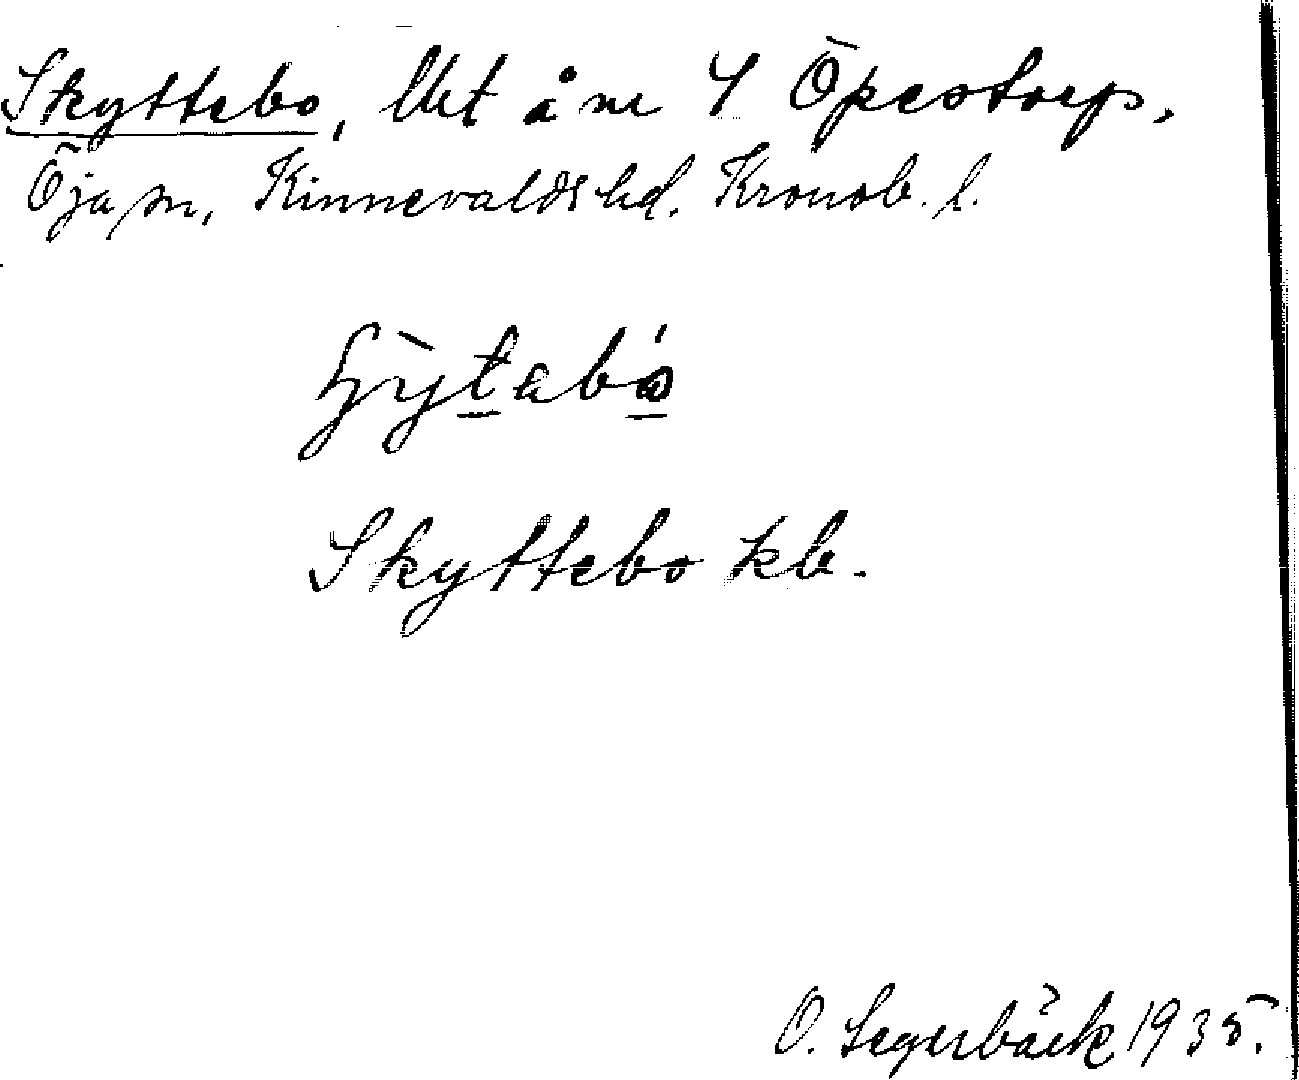 Skyttebo, lht å nr 4 Öpestorp,
Öja sn, Kinnevalds hd. Kronob. l.
Skyttebo kb.
O. Segerbäck 1935.